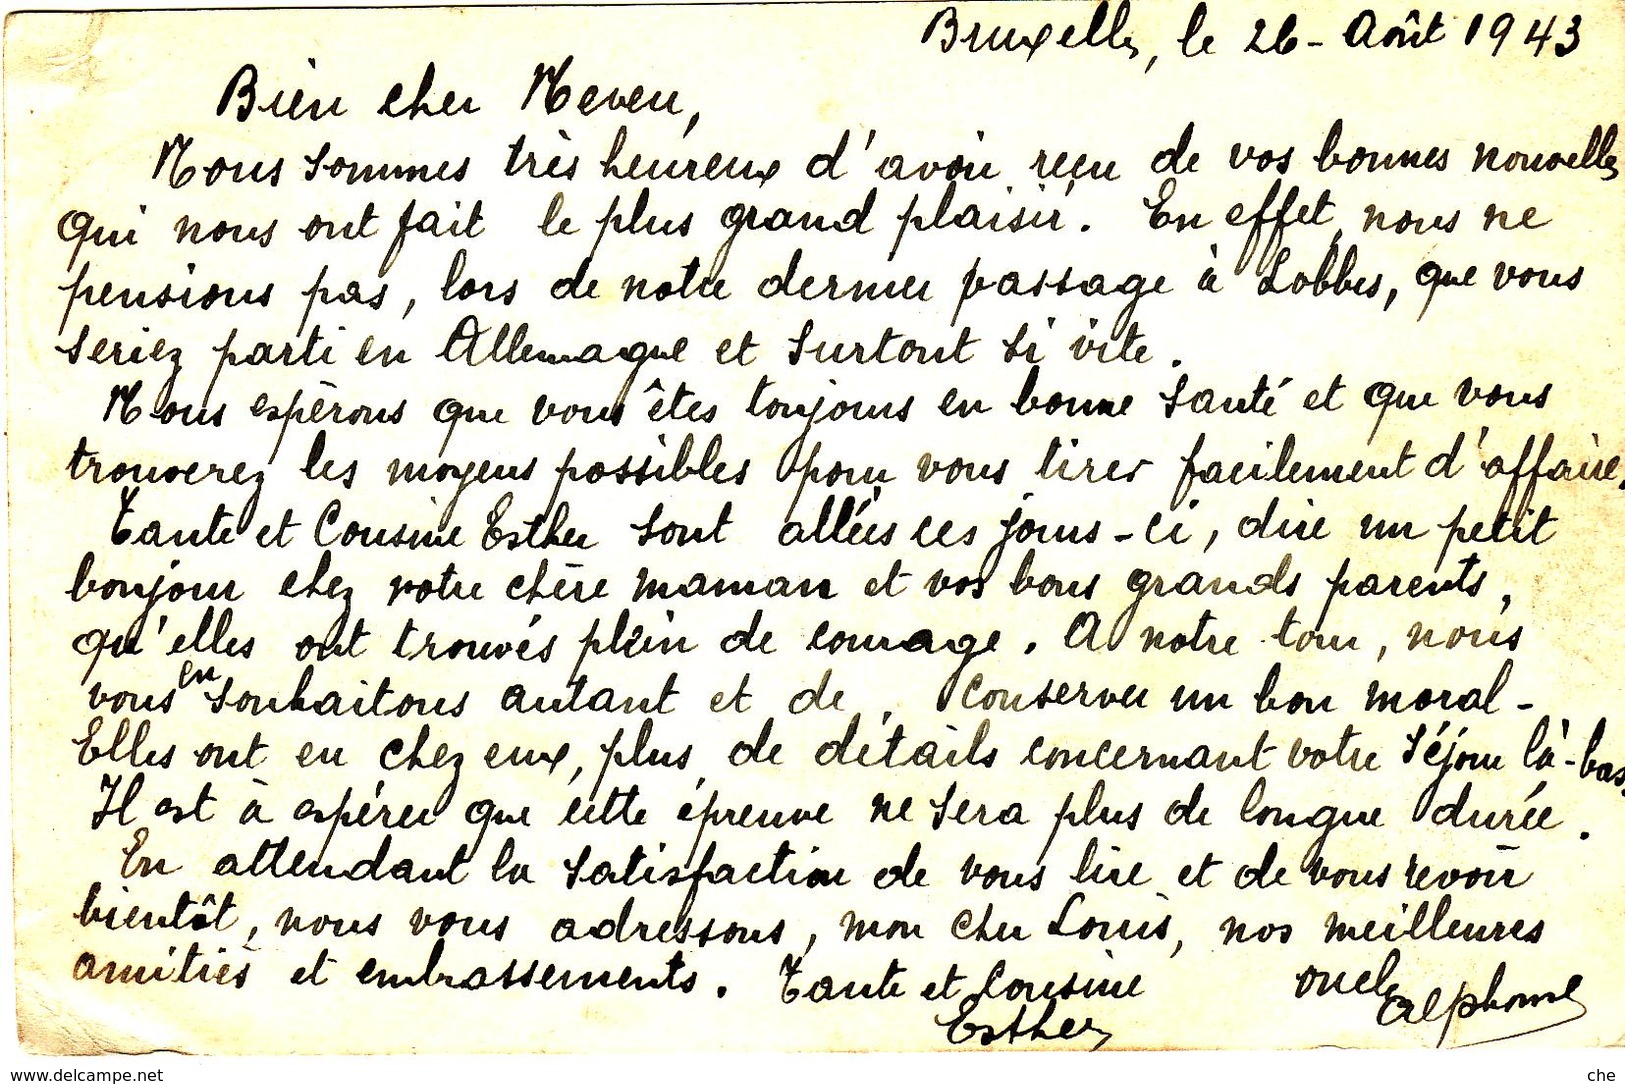 Bruxelles, le 26 - Août 1943
Bien cher Neveu,
Nous sommes très heureux d'avoir reçu de vos bonnes nouvelles
qui nous ont fait le plus grand plaisir. En effet, nous ne
pensions pas, lors de notre dernier passage à Lobbes, que vous
seriez parti en Allemagne et surtout si vite.
Nous espérons que vous êtes toujours en bonne santé et que vous
trouverez les moyens possibles pour vous tirer facilement d'affaire.
Tante et Cousine Esther sont allées ces jours-ci, dire un petit
bonjour chez votre chère maman et vos bons grands parents,
qu'elles ont trouvés plein de courage. A notre tour, nous
vous en souhaitons autant et de conserver un bon moral -
Elles ont eu chez eux, plus de détails concernant votre séjour là-bas.
Il est à espérer que cette épreuve ne sera plus de longue durée.
En attendant la satisfaction de vous lire et de vous revoir
bientôt, nous vous adressons, mon cher Louis, nos meilleures
amitiés et embrassements. Tante et Cousine oncle Alphonse
Esther
www.delcampe.net che